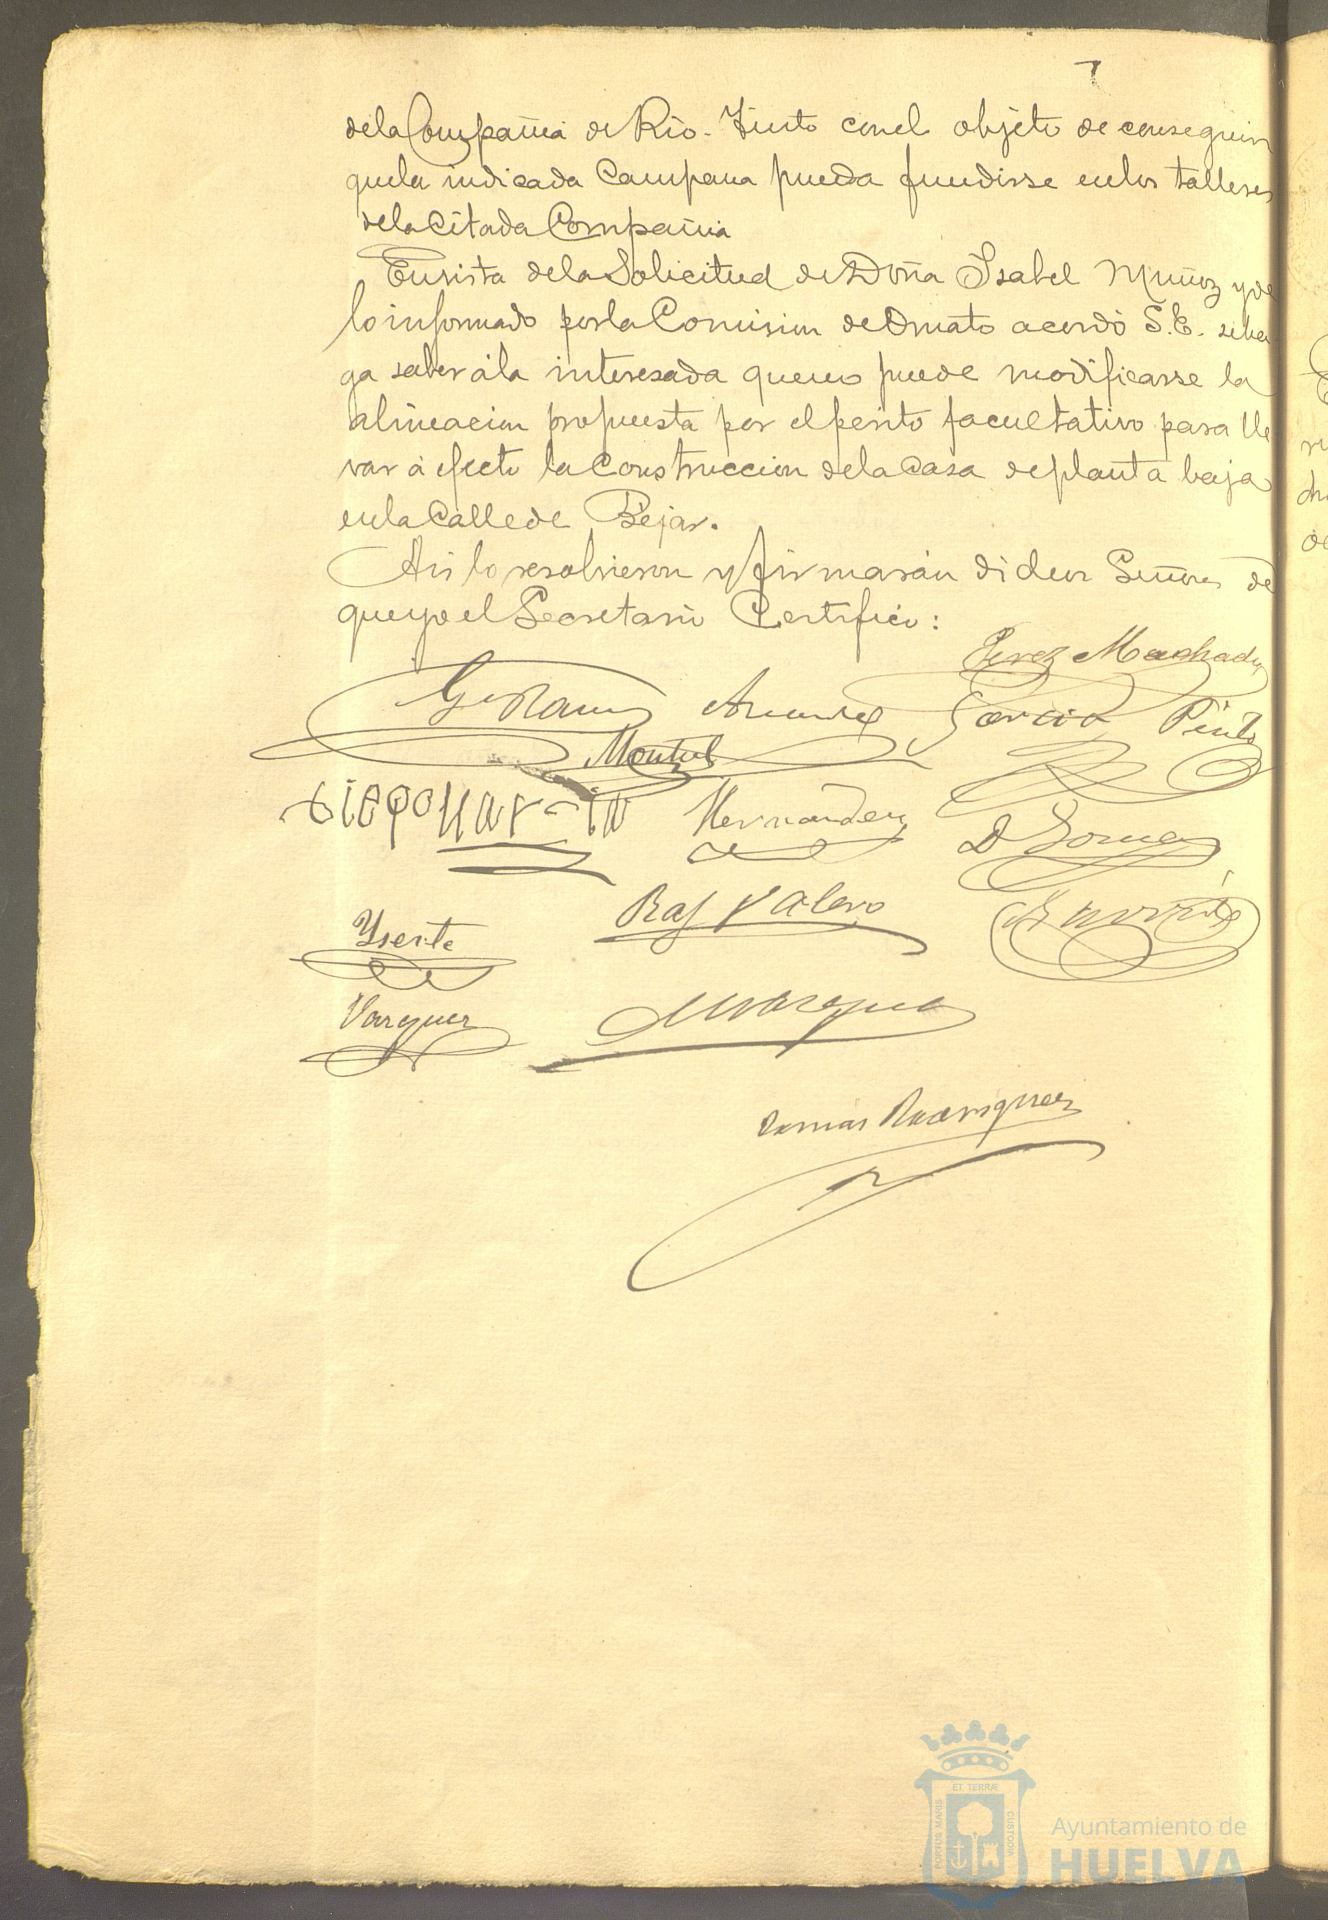 dela Compañia de Rio-Tinto conel objeto de conseguir
quela indicada Campana pueda fundirse enlos talleres
dela Citada Compañia
En vista dela Solicitud de Doña Isabel Muñoz y de
lo informado porla Comision de Ornato acordó S.E. seha
ga saber ála interesada queno puede modificarse la
alineacion propuesta por el perito facultativo para lle
var á efecto la Construccion dela Casa de planta baja
enla Calle de Bejar.
Asi lo resolvieron y firmarán dichos Señores de
que yo el Secretario Certifico:
Perez Machado
Garcia Pinto
Montiel
Hernandez
D Gomez
Raf Valero
Yserte
Vazquez
Tomás Rodriguez
ET TERRÆ
PORTUS MARIS
CUSTODIA
Ayuntamiento de
HUELVA